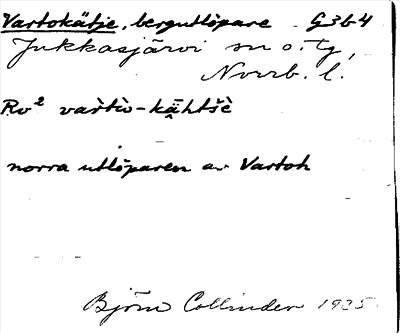 Vartokätje, bergutlöpare G3b4
Jukkasjärvi sn o. tg,
Norrb. l.
Rv² vartiò-kä̮htšè
norra utlöparen av Vartoh
Björn Collinder 1925